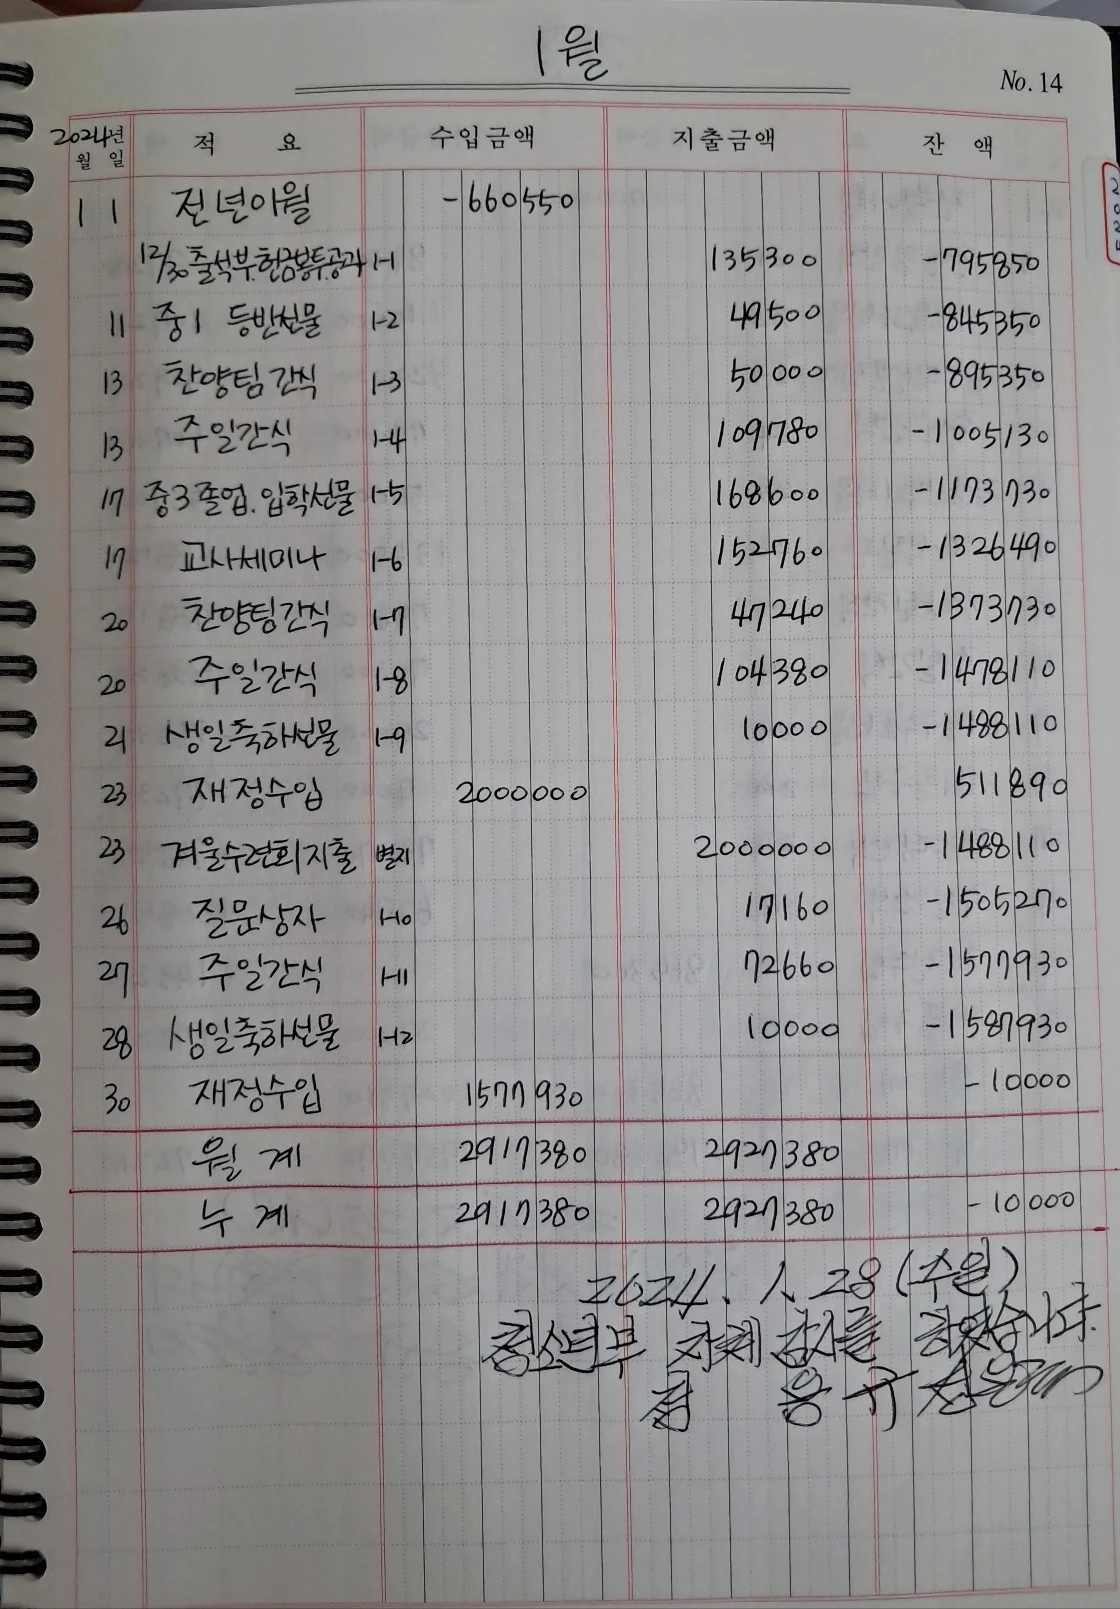 1월
No. 14
2024년
월 일 적 요 수입금액 지출금액 잔 액
1 1 전년이월 -660550
12/30 출석부.헌금봉투.공과 1-1 135300 -795850
11 중1 등반선물 1-2 49500 -845350
13 찬양팀간식 1-3 50000 -895350
13 주일간식 1-4 109780 -1005130
17 중3졸업.입학선물 1-5 168600 -1173730
17 교사세미나 1-6 152760 -1326490
20 찬양팀간식 1-7 47240 -1373730
20 주일간식 1-8 104380 -1478110
21 생일축하선물 1-9 10000 -1488110
23 재정수입 2000000 511890
23 겨울수련회지출 별지 2000000 -1488110
26 질문상자 1-10 17160 -1505270
27 주일간식 1-11 72660 -1577930
28 생일축하선물 1-12 10000 -1587930
30 재정수입 1577930 -10000
월 계 2917380 2927380
누 계 2917380 2927380 -10000
2024. 1. 28 (주일)
청소년부 자체 감사를 하였습니다.